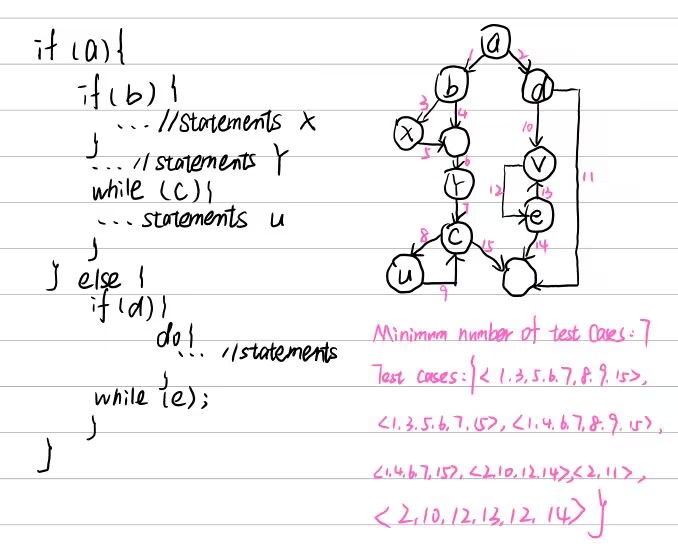 if (a) {
if (b) {
... //statements X
}
... // statements Y
while (c) {
... statements u
}
} else {
if (d) {
do {
... //statements
}
while (e);
}
}
a
1
2
b
d
3
4
10
X
5
6
V
11
Y
12
13
7
e
C
8
15
14
u
9
Minimum number of test cases: 7
Test cases: { < 1.3, 5.6, 7, 8. 9. 15>,
<1. 3. 5. 6. 7. 15>, <1. 4. 6. 7, 8. 9. 15>,
<1. 4. 6. 7, 15>, <2, 10, 12. 14>, <2, 11>,
< 2, 10, 12, 13, 12, 14> }